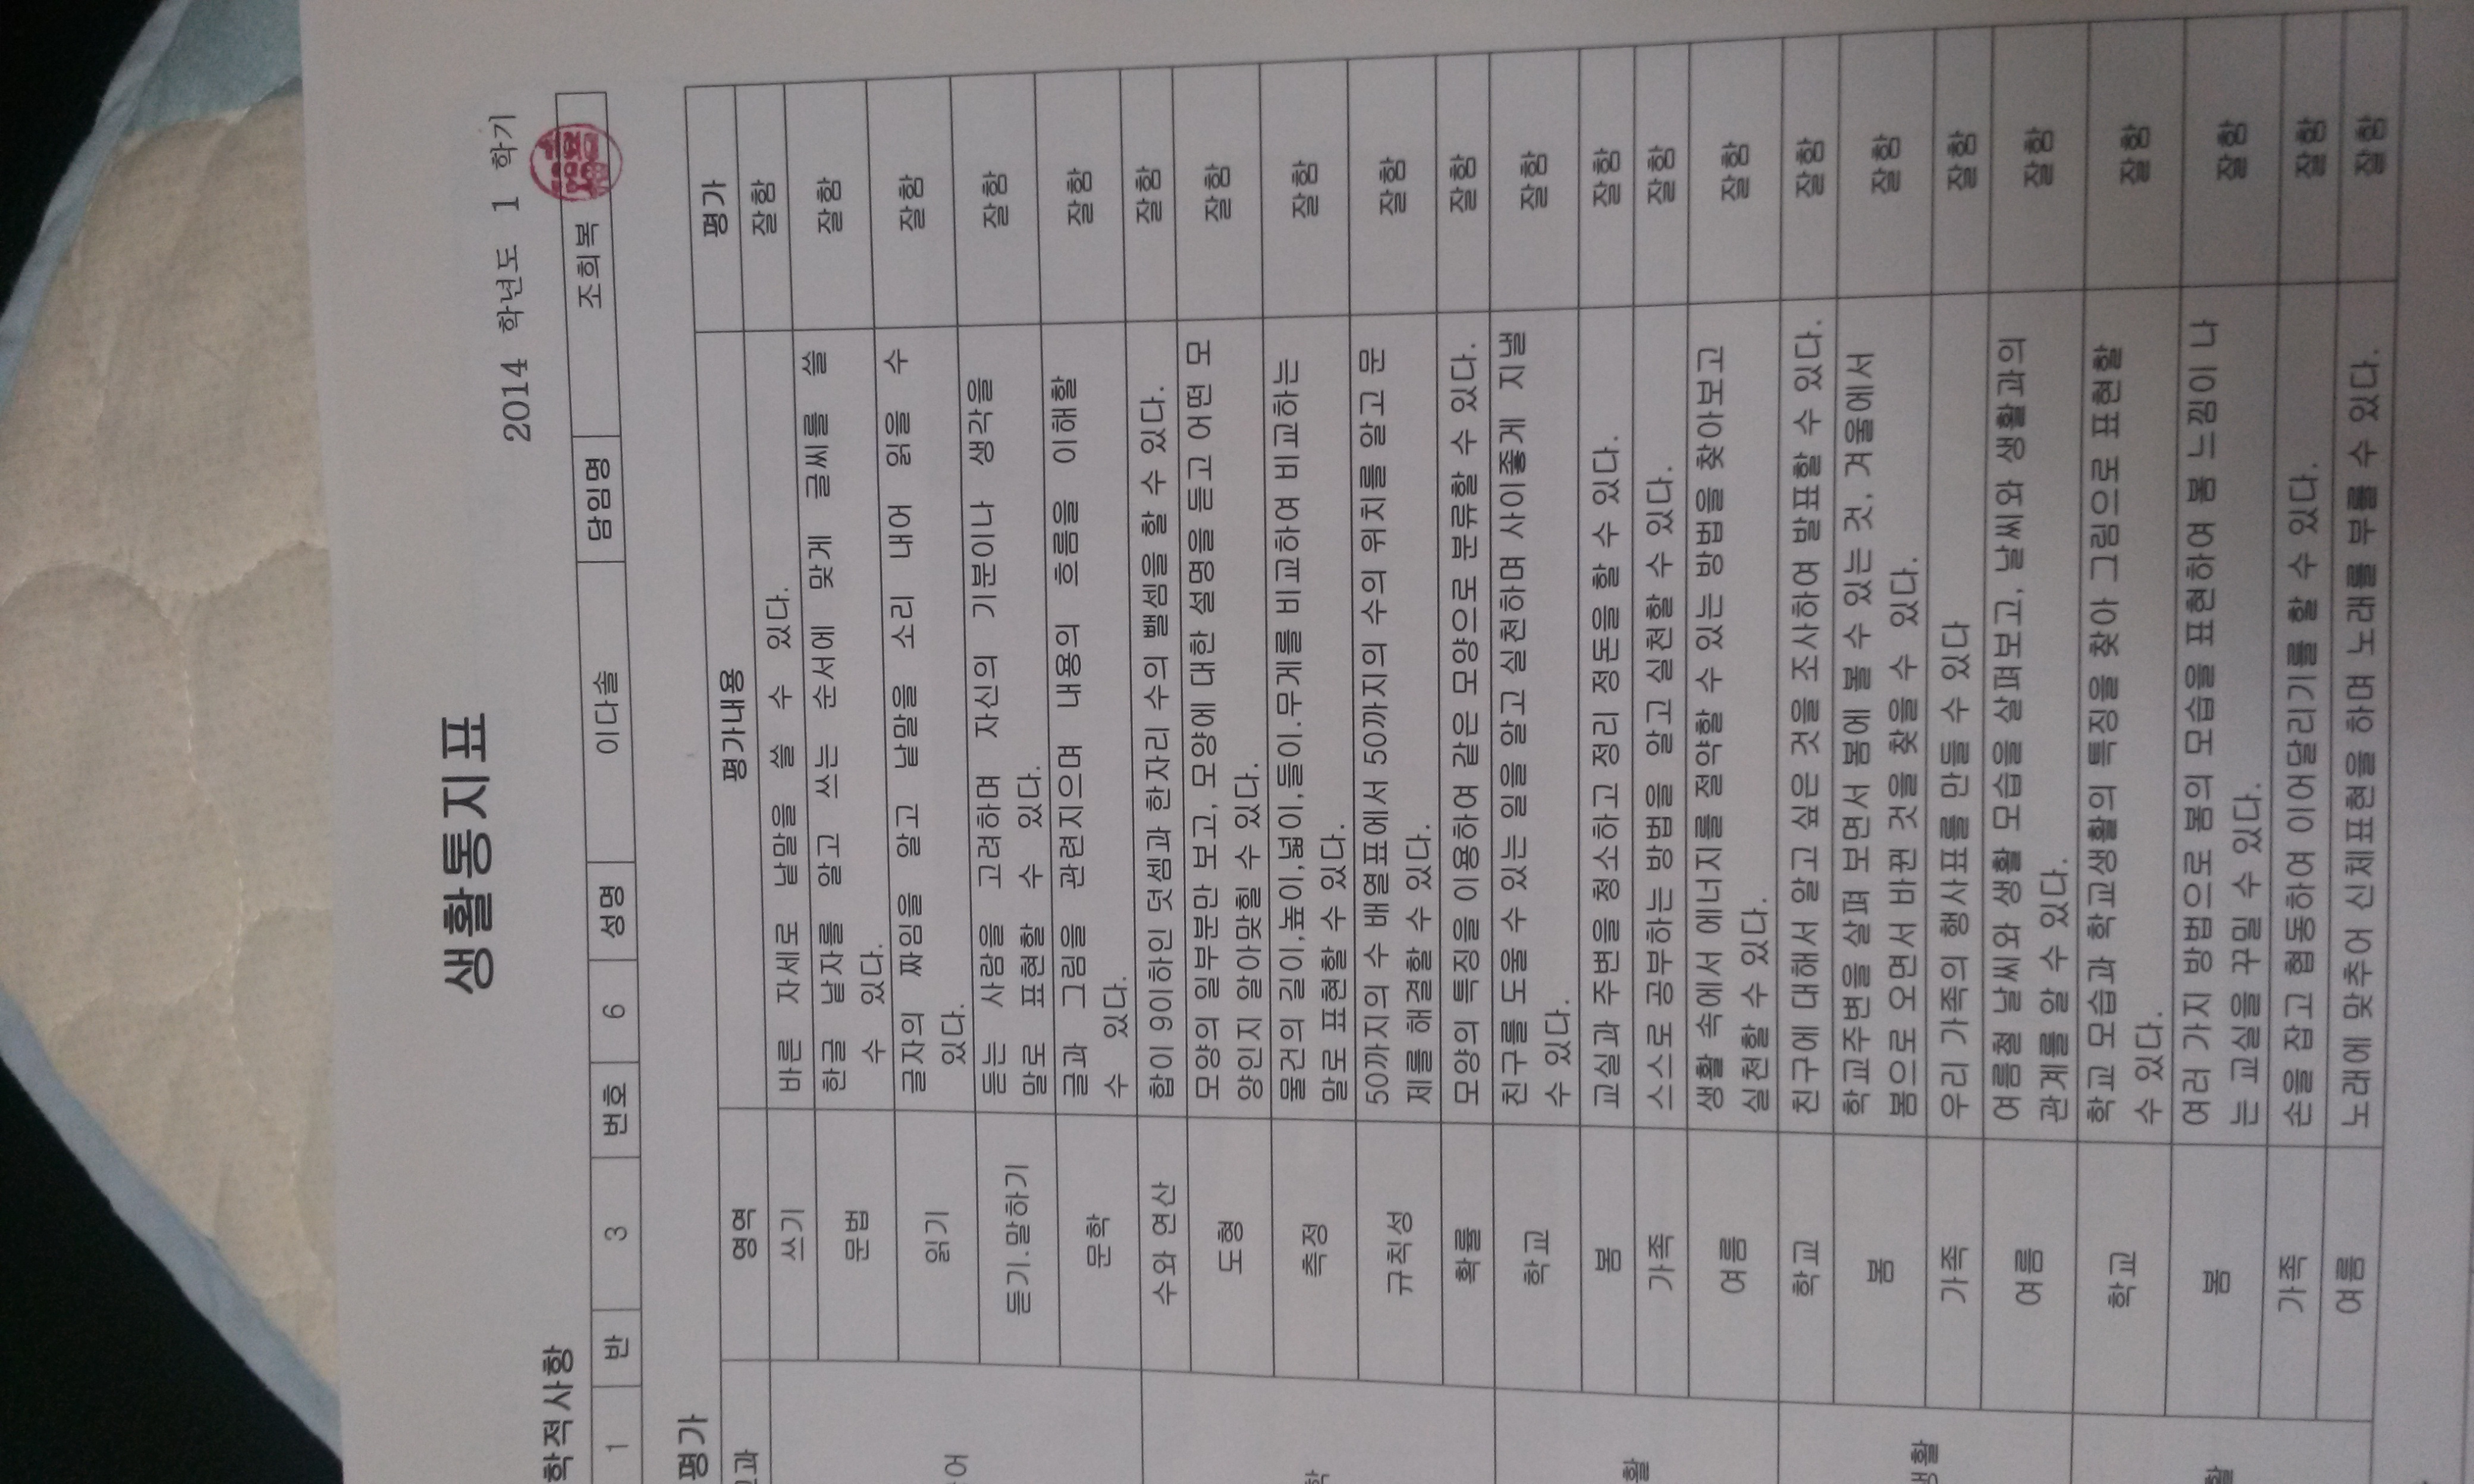 생활통지표
2014 학년도 1 학기
학적사항
1 반 3 번호 6 성명 이다솔 담임명 조희복
평가
과 영역 평가내용 평가
어 쓰기 바른 자세로 낱말을 쓸 수 있다. 잘함
문법 한글 낱자를 알고 쓰는 순서에 맞게 글씨를 쓸 잘함
수 있다.
읽기 글자의 짜임을 알고 낱말을 소리 내어 읽을 수 잘함
있다.
듣기.말하기 듣는 사람을 고려하며 자신의 기분이나 생각을 잘함
말로 표현할 수 있다.
문학 글과 그림을 관련지으며 내용의 흐름을 이해할 잘함
수 있다.
학 수와 연산 합이 9이하인 덧셈과 한자리 수의 뺄셈을 할 수 있다. 잘함
도형 모양의 일부분만 보고, 모양에 대한 설명을 듣고 어떤 모 잘함
양인지 알아맞힐 수 있다.
측정 물건의 길이,높이,넓이,들이.무게를 비교하여 비교하는 잘함
말로 표현할 수 있다.
규칙성 50까지의 수 배열표에서 50까지의 수의 위치를 알고 문 잘함
제를 해결할 수 있다.
확률 모양의 특징을 이용하여 같은 모양으로 분류할 수 있다. 잘함
활 학교 친구를 도울 수 있는 일을 알고 실천하며 사이좋게 지낼 잘함
수 있다.
봄 교실과 주변을 청소하고 정리 정돈을 할 수 있다. 잘함
가족 스스로 공부하는 방법을 알고 실천할 수 있다. 잘함
여름 생활 속에서 에너지를 절약할 수 있는 방법을 찾아보고 잘함
실천할 수 있다.
생활 학교 친구에 대해서 알고 싶은 것을 조사하여 발표할 수 있다. 잘함
봄 학교주변을 살펴 보면서 봄에 볼 수 있는 것, 겨울에서 잘함
봄으로 오면서 바뀐 것을 찾을 수 있다.
가족 우리 가족의 행사표를 만들 수 있다 잘함
여름 여름철 날씨와 생활 모습을 살펴보고, 날씨와 생활과의 잘함
관계를 알 수 있다.
활 학교 학교 모습과 학교생활의 특징을 찾아 그림으로 표현할 잘함
수 있다.
봄 여러 가지 방법으로 봄의 모습을 표현하여 봄 느낌이 나 잘함
는 교실을 꾸밀 수 있다.
가족 손을 잡고 협동하여 이어달리기를 할 수 있다. 잘함
여름 노래에 맞추어 신체표현을 하며 노래를 부를 수 있다. 잘함